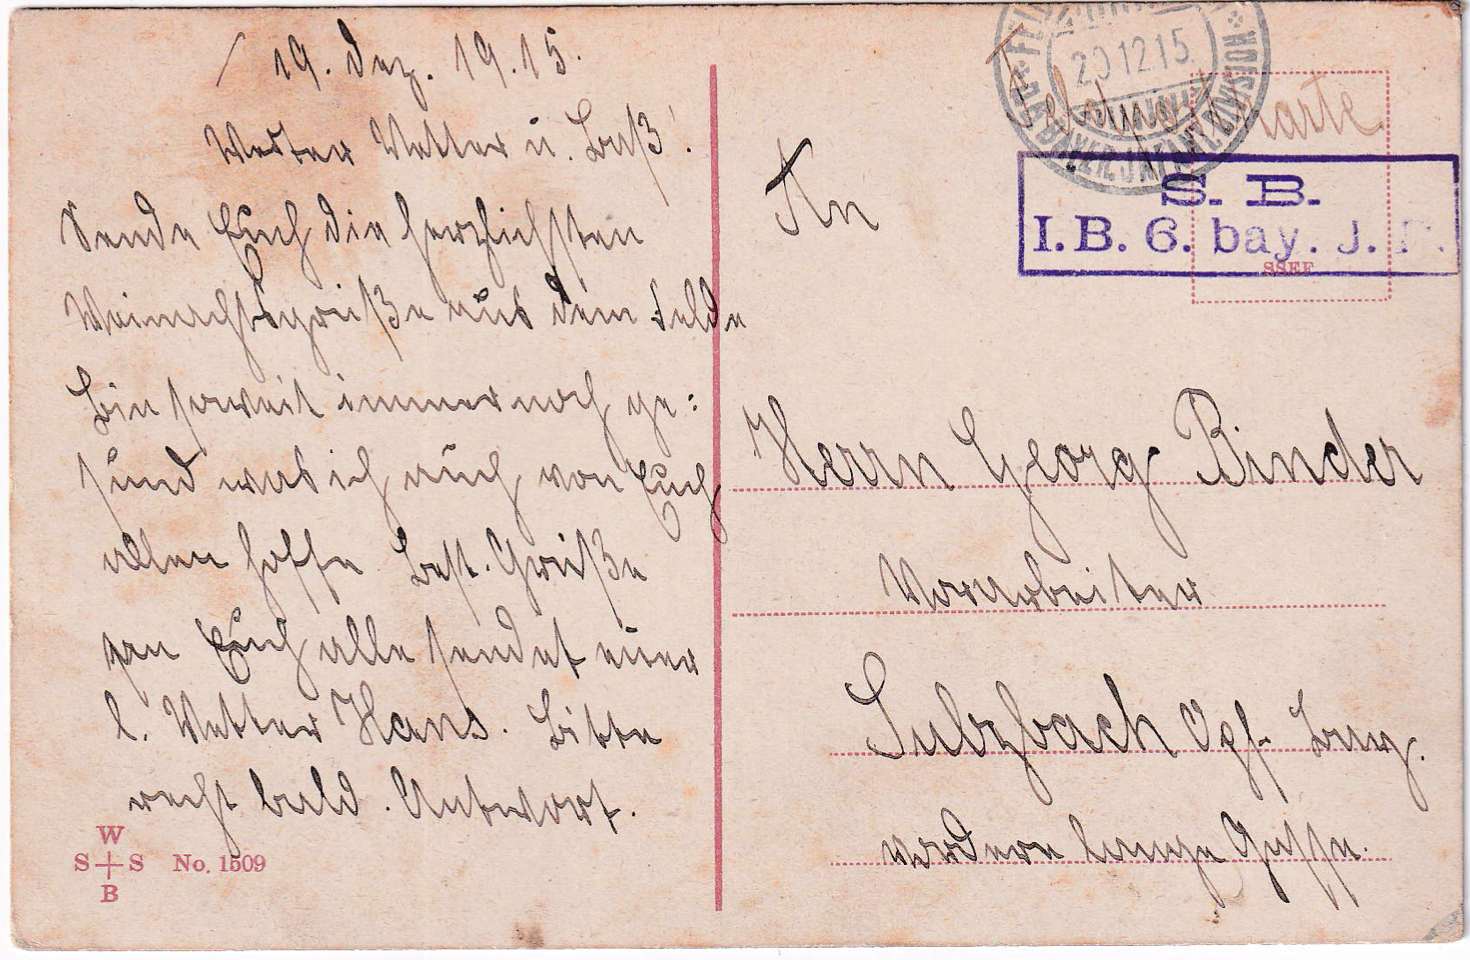 19. Dez. 19.15.
Werter Vetter u. Baß!
Sende Euch die herzlichsten
Weinachtsgrüße aus dem Felde
Bin soweit immer noch ge:
sund was ich auch von Euch
allen hoffe Best. Grüße
an Euch alle sendet euer
l. Vetter Hans. Bitte
recht bald. Antwort.
W
S S
B
No. 1509
20.12.15.
6. BAYER. INFANT. DIVISION
Feldpostkarte
S. B.
I. B. 6. bay. J. R.
SSEF
An
Herrn Georg Binder
Vorarbeiter
Sulzbach Opf. Bay.
vordere lange Gasse.